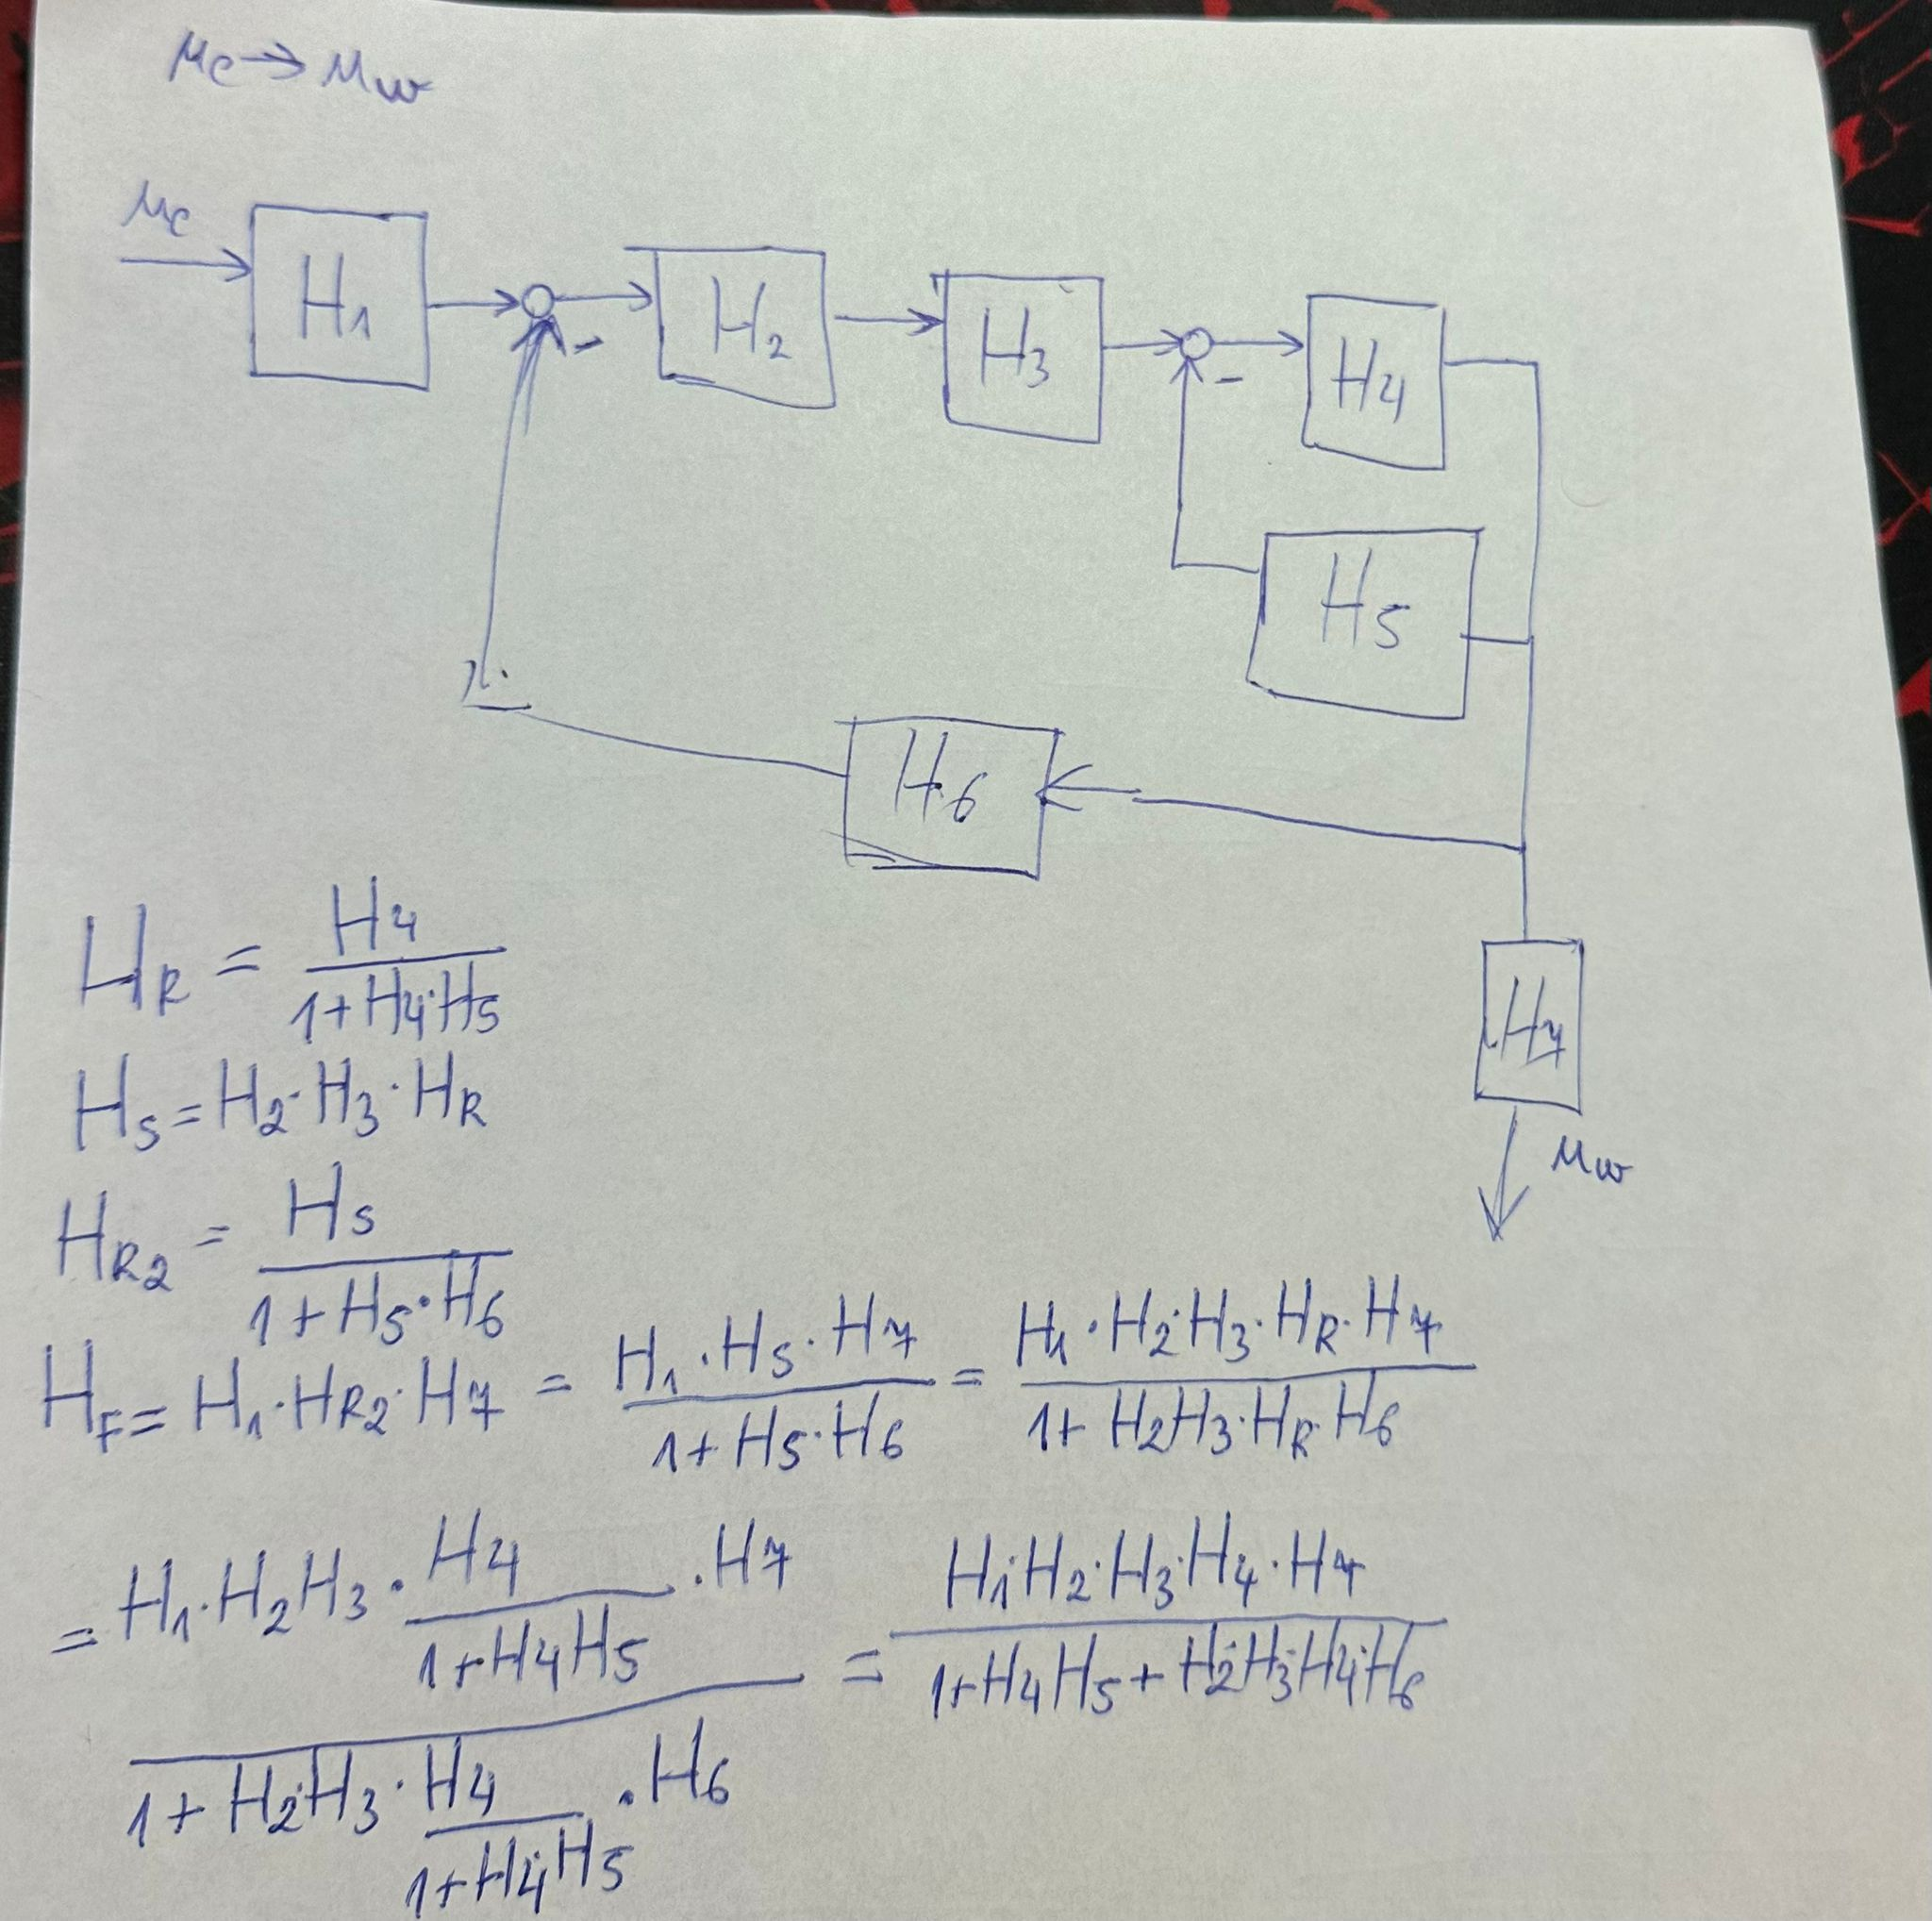 μc → μw
μc
H1
H2
H3
H4
-
-
H5
H6
H7
μw
HR = H4 / (1+H4·H5)
HS = H2·H3·HR
HR2 = HS / (1+HS·H6)
HF = H1·HR2·H7 = (H1·HS·H7) / (1+HS·H6) = (H1·H2·H3·HR·H7) / (1+H2H3·HR·H6)
= (H1·H2H3·H4/(1+H4H5)·H7) / (1+H2·H3·H4/(1+H4·H5)·H6) = (H1·H2·H3·H4·H4) / (1+H4H5+H2·H3·H4·H6)